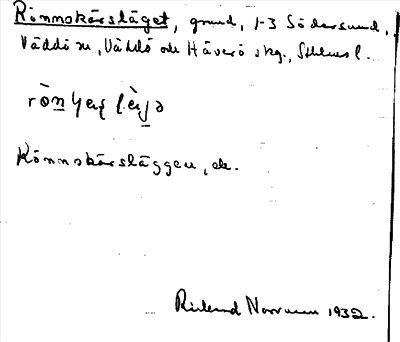 Rönnskärsläget, grund, 1-3 Södersund,
Väddö sn, Väddö och Häverö skg., Sthlms l.
Rönnskärsläggen, ek.
Rickard Norrman 1932.